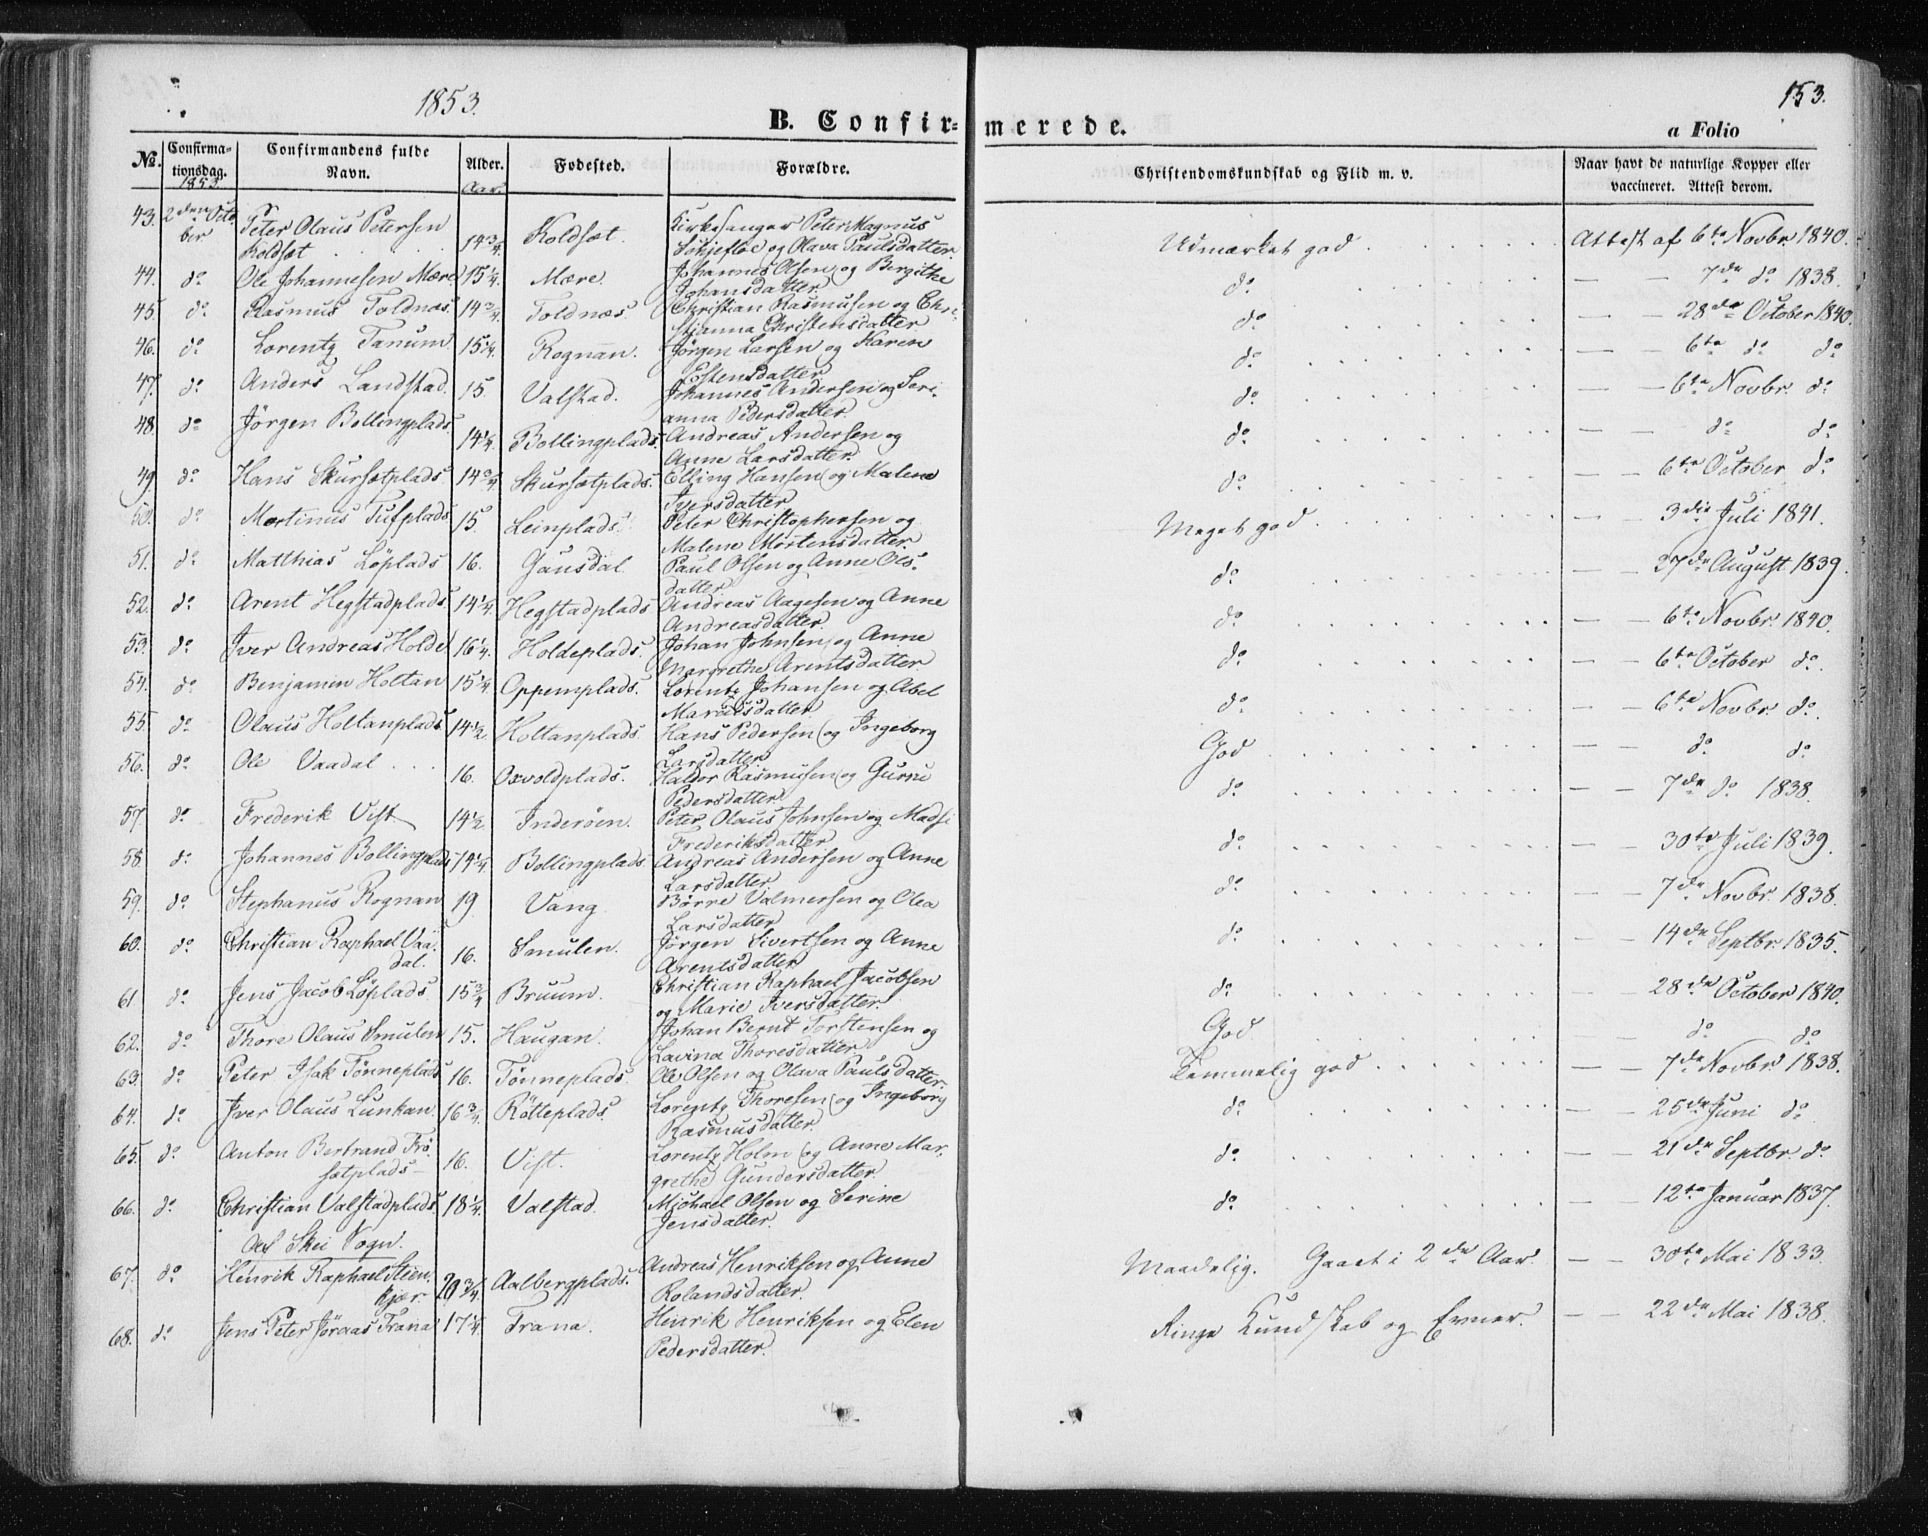 1853.
153.
B. Confir=
merede.
a Folio
No.
Confirma-
tionsdag.
1853
Confirmandens fulde
Navn.
Alder.
Aar
Fodested.
Forældre.
Christendomskundskab og Flid m. v.
Naar havt de naturlige Kopper eller
vaccineret. Attest derom.
43. 2den Octo Peter Olaus Petersen Kirkesanger Peter Magnus
ber Koldsæt . . . 14 3/4. Koldsæt. og Olava Paulsdatter. Udmærket god . . . Attest af 6te Novbr 1840.
44. do Ole Johannesen Mære 15 1/4. Mære. Johannes Olsen og Bergithe
Johansdatter do — — 7de do 1838.
45. do Rasmus Toldnæs. 14 3/4. Toldnæs. Christian Rasmusen og Chri-
stianna Christensdatter do — — 28de October 1840.
46. do Lorentz Tanum 15 1/4. Rognan. Jørgen Larsen og Karen
Estensdatter do — — 6te do do
47. do Anders Landstad. 15. Valstad. Johannes Andersen og Seri-
anna Pedersdatter do — — 6te Novbr. do
48. do Jörgen Bollingplads 14 1/4. Bollingplads. Andreas Andersen og
Anne Larsdatter. do — — do do
49. do Hans Skursætplads 14 3/4 Skursætplads. Elling Hansen og Malene
Iversdatter do — — 6te October do
50. do Martinus Tufplads 15 Leinplads. Peter Christophersen og
Malene Mortensdatter. Meget god . . . — — 3die Juli 1841.
51. do Matthias Löplads 16. Gausdal. Paul Olsen og Anne Ols-
datter do — — 27de August 1839.
52. do Arent Hegstadplads. 14 1/4. Hegstadplads Andreas Aagesen og Anne
Andreasdatter do — — 6te Novbr. 1840.
53. do Iver Andreas Holde 16 1/4. Holdeplads. Johan Johnsen og Anne
Margrethe Arentsdatter do — — 6te October do.
54. do Benjamin Holtan 15 1/4 Oppemplads. Lorentz Johansen og Abel
Marcusdatter. do — — 6te Novbr do.
55. do Olaus Holtanplads 14 1/2. Holtanplads. Hans Pedersen og Ingeborg
Larsdatter God — — do do
56. do Ole Vaadal . . . 16. Oxvoldplads. Haldor Rasmusen og Gurine
Pedersdatter do — — 7de do 1838.
57 do Frederik Vist. 14 1/2. Inderöen. Peter Olaus Johnsen og Madsi
Frederiksdatter do — — 30te Juli 1839.
58 do Johannes Bollingplads 14 1/4 Bollingplads Andreas Andersen og Anne
Larsdatter do — — 7de Novbr. 1838.
59. do Stephanus Rognan 19 Vang. Börre Valmersen og Olea
Larsdatter do — — 14de Septbr 1835.
60. do Christian Raphael Vaa-
dal. 16. Smulen. Jørgen Sivertsen og Anne
Arentsdatter do — — 28de October 1840.
61 do Jens Jacob Löplads 15 3/4 Bruum. Christian Raphael Jacobsen
og Marie Iversdatter. God — — do do
62. do Thore Olaus Smulen 15. Haugan. Johan Bernt Torstensen og
Lavina Thoresdatter Temmelig god . . . — — 7de Novbr 1838.
63. do Peter Isak Tönneplads 16. Tönneplads. Ole Olsen og Olava Paulsdatter. do — — 25de Juni do
64. do Iver Olaus Lunkan. 16 3/4 Rötteplads. Lorentz Thoresen og Ingeborg
Rasmusdatter. do — — 21de Septbr. do
65. do Anton Bertrand Frö-
sætplads — 16. Vist. Lorentz Holm og Anne Mar-
grethe Gundersdatter do — — 12te Januar 1837.
66. do Christian Valstadplads 18 1/4. Valstad. Michael Olsen og Serine
Jensdatter.
Af Skei Sogn.
67. do Henrik Raphael Steen-
kjær. 20 3/4. Aalbergplads. Andreas Henriksen og Anne
Rolandsdatter. Maadelig. Gaaet i 2de Aar. — 30te Mai 1833.
68. do Jens Peter Jöraas Trana 17 1/4 Trana. Henrik Henriksen og Elen
Pedersdatter. Ringe Kundskab og Evner. — — 22de Mai 1838.